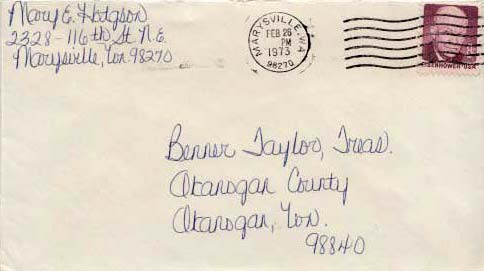 Mary E. Hodgson
2328-116th St. N.E.
Marysville, Wn 98270
MARYSVILLE, WA
FEB 26
PM
1973
98270
EISENHOWER·USA
Benner Taylor, Treas.
Okanogan County
Okanogan, Wn.
98840